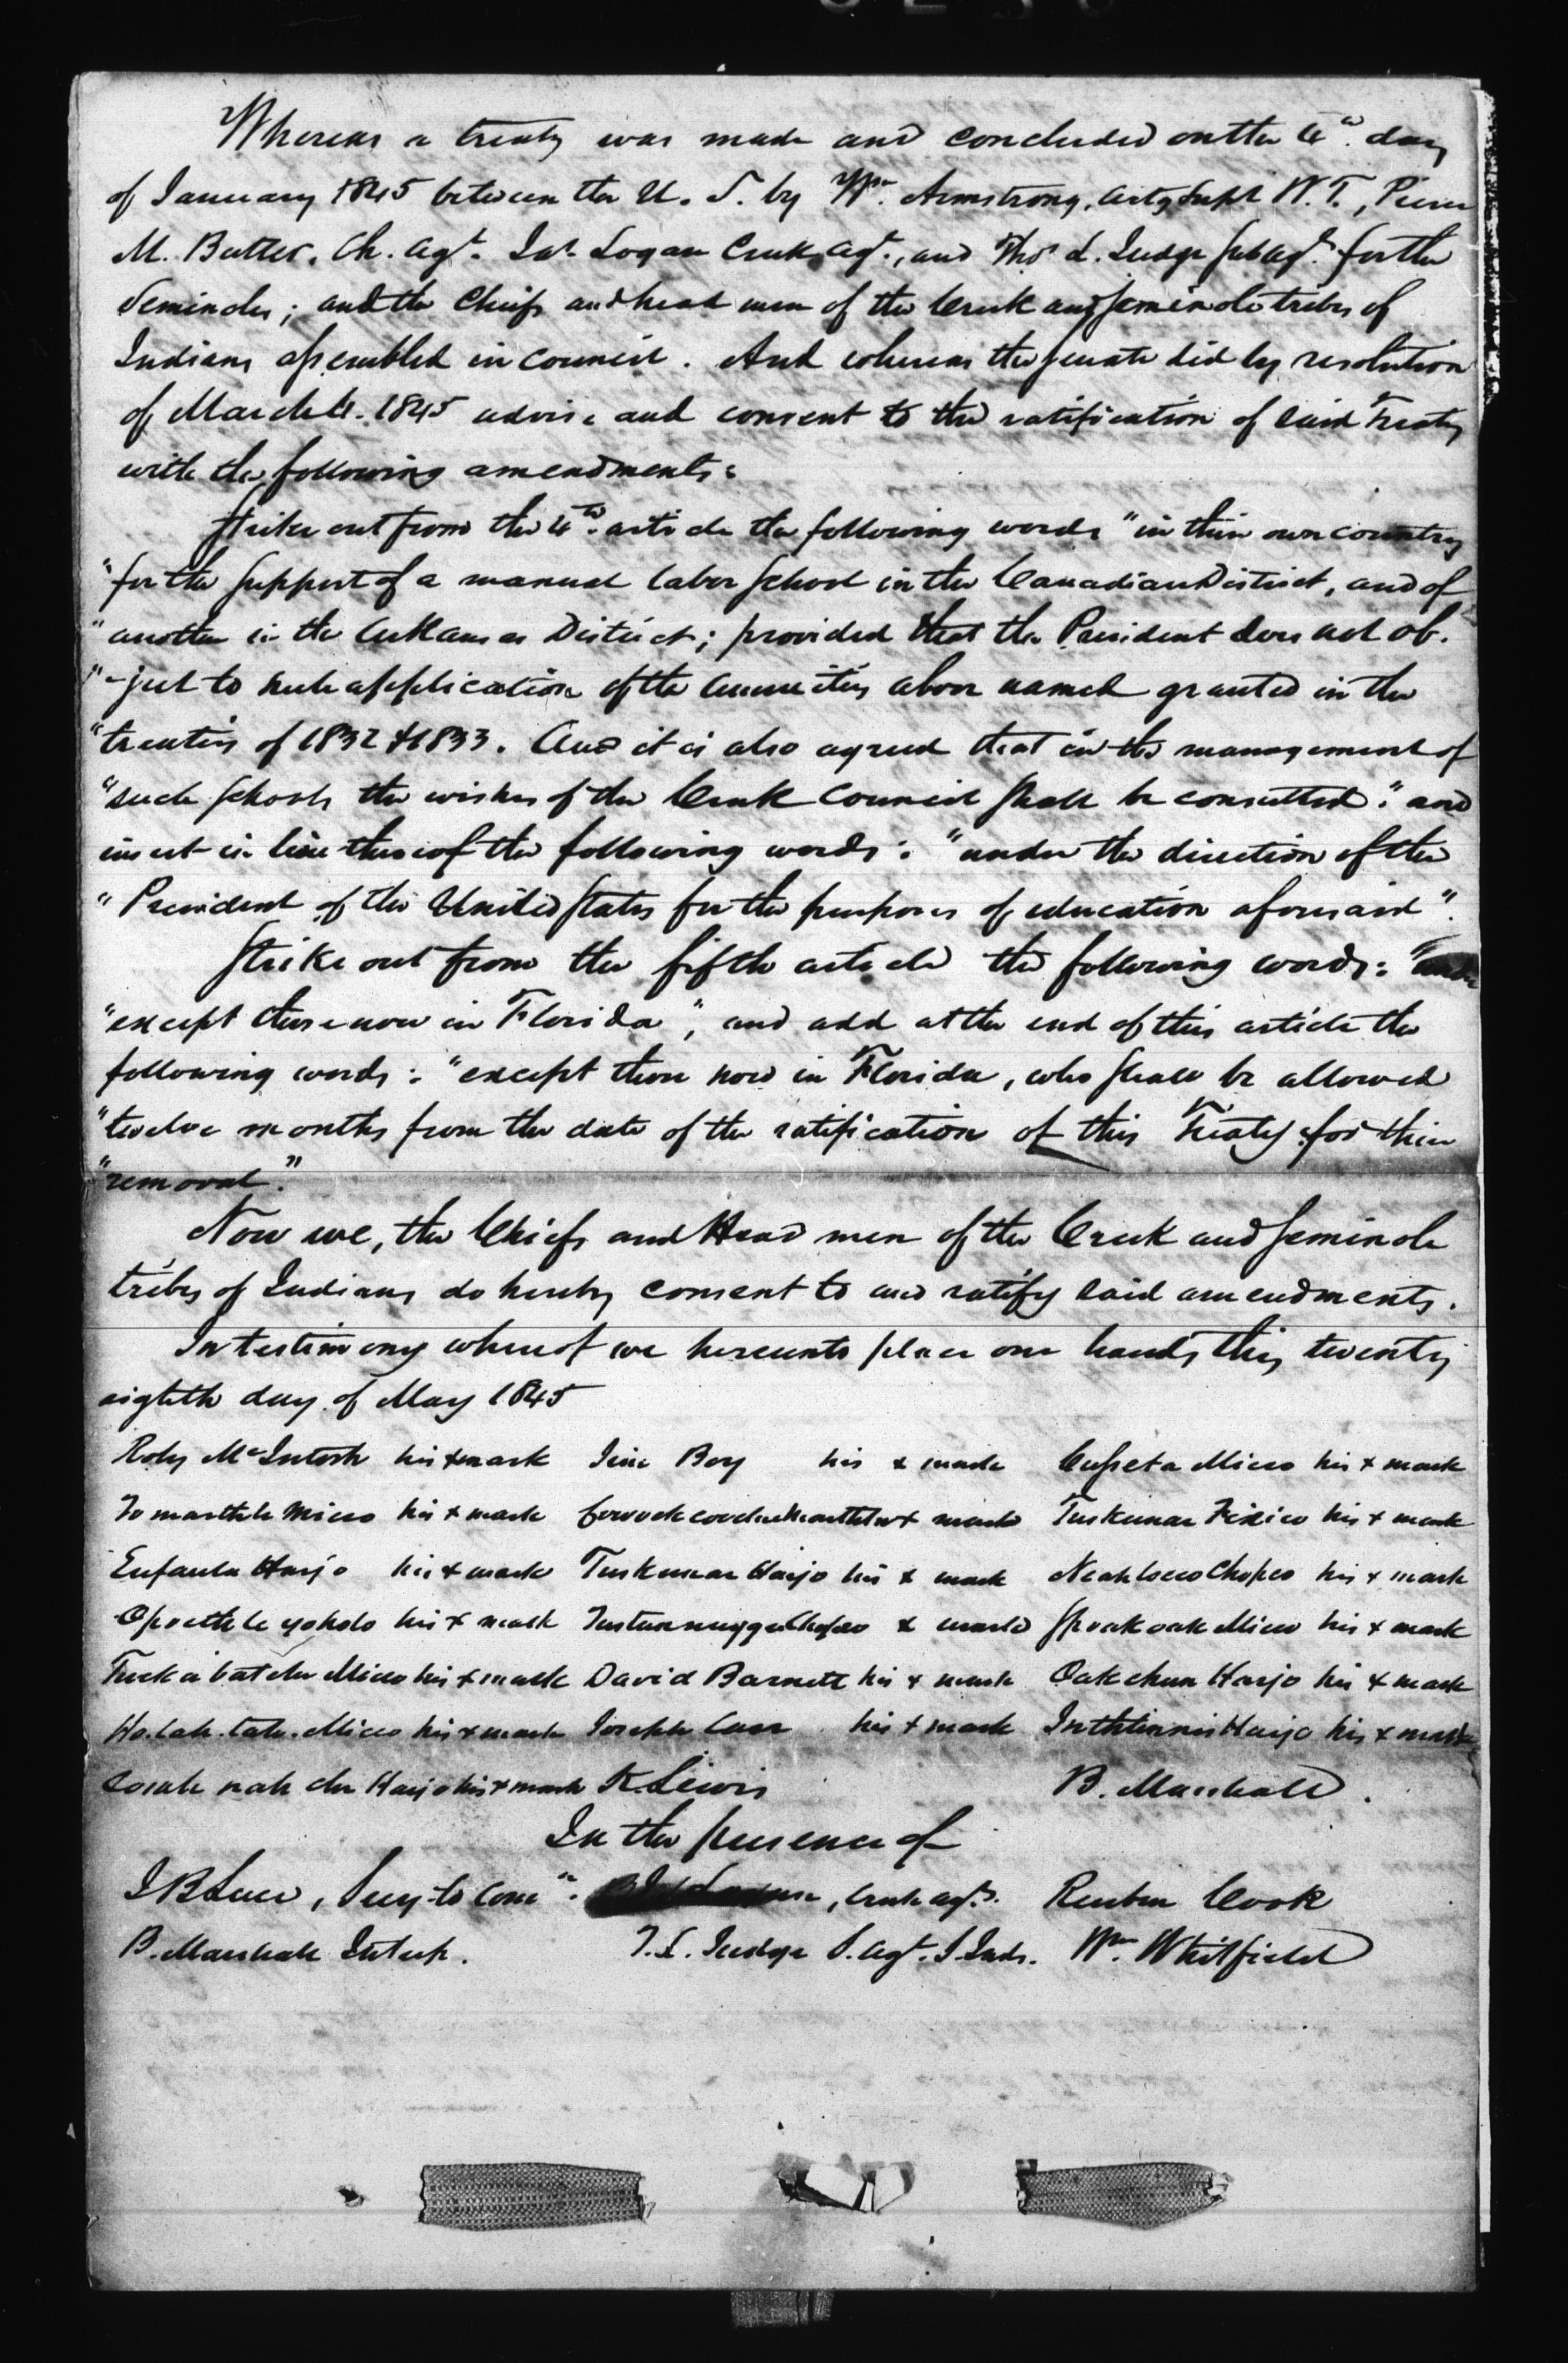 Whereas a treaty was made and concluded on the 4th. day
of January 1845 between the U. S. by Wm. Armstrong, actg Supt W. T., Pierce
M. Butler, Ch. agt. Jas. Logan Creek agt., and Thos. L. Judge sub agt. for the
Seminoles; and the Chiefs and head men of the Creek and Seminole tribes of
Indians assembled in council. And whereas the senate did by resolution
of March 6. 1845 advise and consent to the ratification of said Treaty
with the following amendments:
Strike out from the 4th. article the following words "in their own country
"for the support of a manual labor school in the Canadian District, and of
"another in the Arkansas District; provided that the President does not ob-
"-ject to such application of the annuities above named granted in the
"treaties of 1832 & 1833. And it is also agreed that in the management of
"such schools the wishes of the Creek Council shall be consulted." and
insert in lieu thereof the following words: "under the direction of the
"President of the United States for the purposes of education aforesaid".
Strike out from the fifth article the following words: "
"except those now in Florida", and add at the end of this article the
following words: "except those now in Florida, who shall be allowed
"twelve months from the date of the ratification of this Treaty for their
"removal."
Now we, the Chiefs and Head men of the Creek and Seminole
tribes of Indians do hereby consent to and ratify said amendments.
In testimony whereof we hereunto place our hands this twenty
eighth day of May 1845
Roly McIntosh his x mark Jim Boy his x mark Cusseta Micco his x mark
To marthle Micco his x mark x mark Tuskunar Fixico his x mark
Eufaula Harjo his x mark Tuskunar Harjo his x mark Neah locco Chopco his x mark
Opoethle yoholo his x mark x mark Spoak oak Micco his x mark
Tuck a batche Micco his x mark David Barnett his x mark Oak chun Harjo his x mark
Ho. lah. tah. Micco his x mark Joseph Carr his x mark Harjo his x mark
Harjo his x mark K. Lewis B. Marshall.
In the presence of
J B Luce, Secy to Comn. , Creek agt. Reuben Cook
B. Marshall Interp. T. L. Judge S. agt. S. Inds. Wm. Whitfield